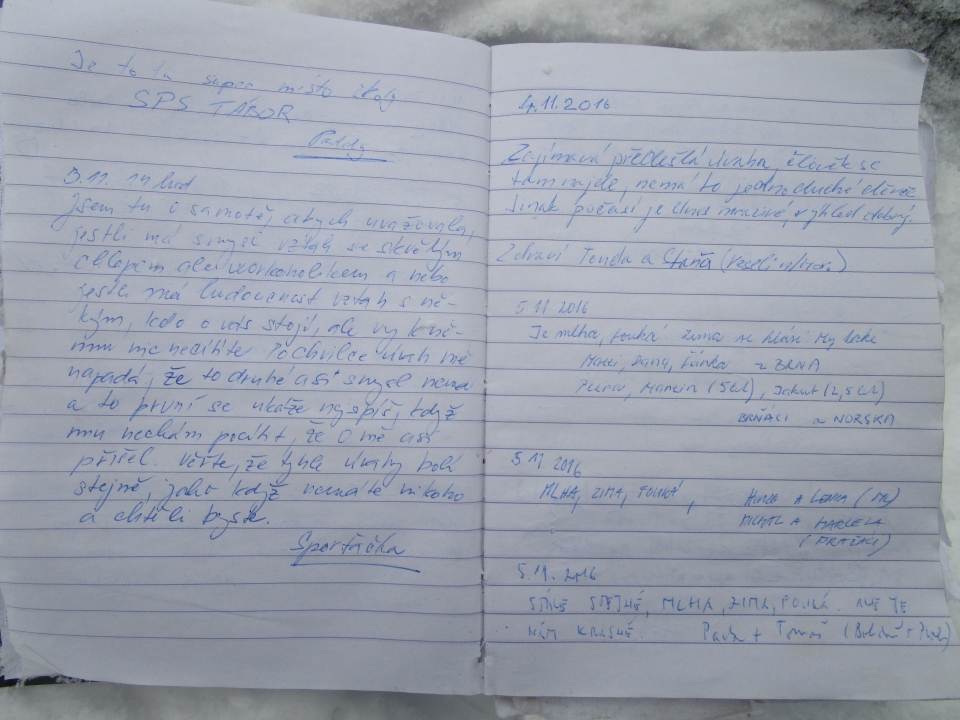 Je to tu super místo
SPS TÁBOR
3.11. 14 hod
jsem tu o samotě, abych uvažovala,
jestli má smysl vztah se skvělým
chlapem ale workoholikem a nebo
jestli má budoucnost vztah s ně-
kým, kdo o vás stojí, ale vy k ně-
mu nic necítíte. Po chvilce úvah mě
napadá, že to druhé asi smysl nemá
a to první se ukáže nejspíš, když
mu nechám pocítit, že o mě asi
přišel. Věřte, že tyhle úvahy bolí
stejně, jako když nemáte nikoho
a chtěli byste.
Sporťačka
4.11.2016
Zajímavá předešlá úvaha, člověk se
tam najde, nemá to jednoduché děvče.
Jinak počasí je dnes mrazivé, výhled dobrý.
Zdraví Tonda a Stáňa
5 11 2016
Je mlha, fouká zima se hlásí My
z BRNA
(5 let), Jakub (2,5 let)
BRŇÁCI z NORSKA
5 11 2016
MLHA, ZIMA, FOUKÁ,
A LENKA
MICHAL A MARCELA
(PRAŽÁCI)
5.11.2016
STÁLE STEJNÉ, MLHA, ZIMA, FOUKÁ. ALE JE
NÁM KRÁSNĚ. + Tomáš